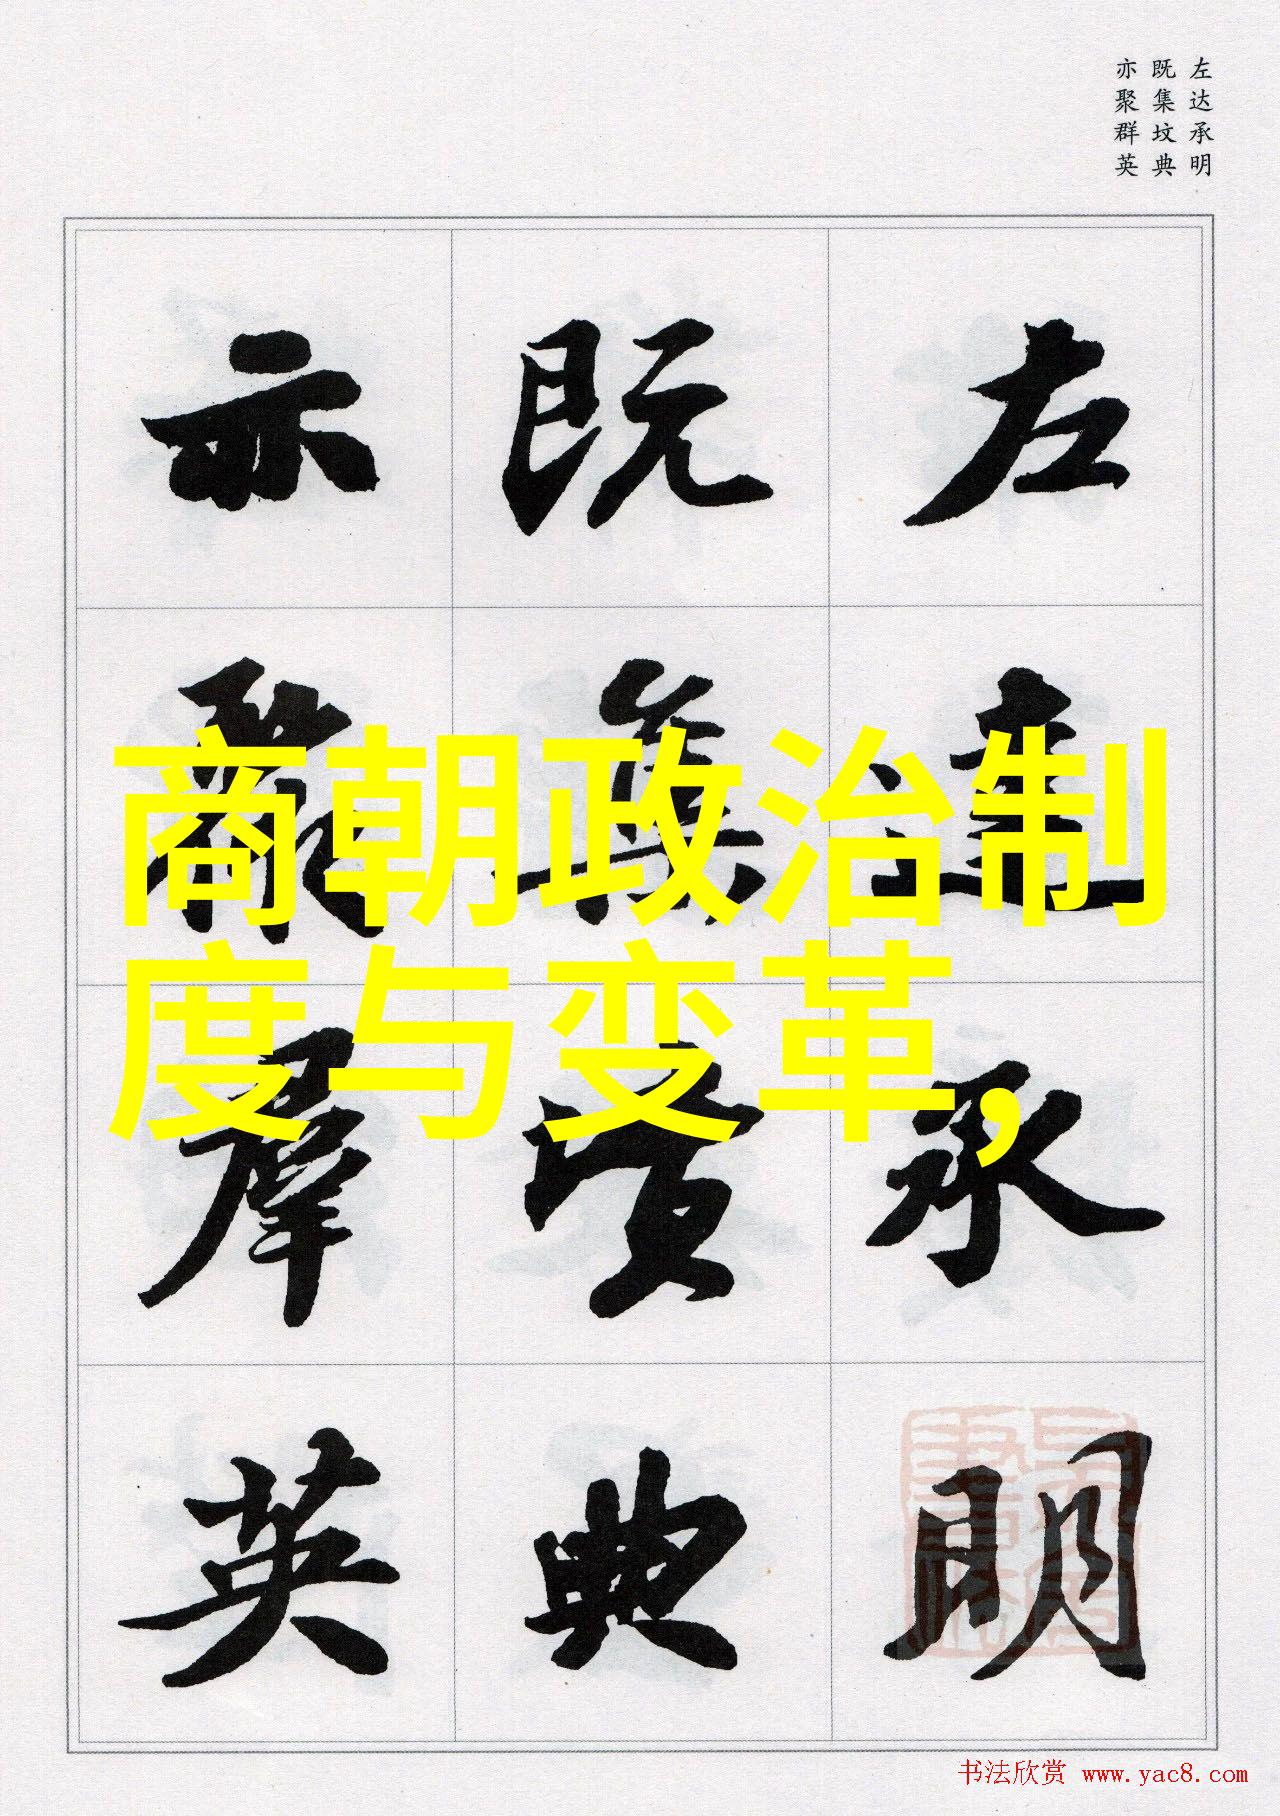 左达承明
既集坟典
亦聚群英
左达承明
既集坟典
亦聚群英
商朝政治制
度与变革，
书法欣赏 www.yac8.com